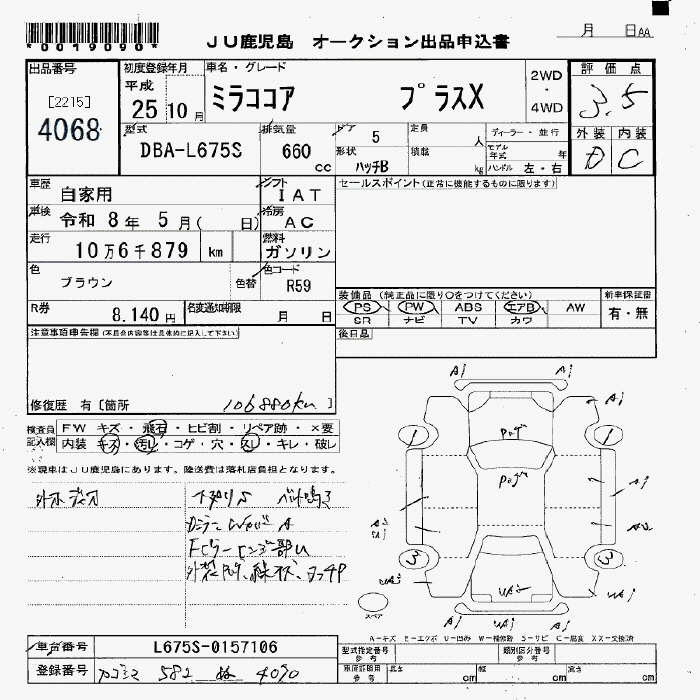 *0019090*
JU鹿児島 オークション出品申込書
月 日AA
出品番号
[2215]
4068
初度登録年月
平成
25 10月
車名・グレード
ミラココア プラスX
2WD
・
4WD
評価点
3.5
外装 内装
D C
型式
DBA-L675S
排気量
660
cc
ドア 5
形状
ハッチB
定員
人
積載
kg
ディーラー・並行
モデル年式 年
ハンドル 左・右
車歴
自家用
シフト
IAT
車検
令和 8年 5月( 日)
冷房
AC
走行
10万6千879 km
燃料
ガソリン
色
ブラウン
色替
色コード
R59
R券
8.140円
名変通知期限
月 日
セールスポイント(正常に機能するものに限ります)
装備品(純正品に限り○をつけてください)
PS PW ABS エアB AW
SR ナビ TV カワ
新車保証書
有・無
後日品
注意事項申告欄(不具合内容等は具体的に記入して下さい)
修復歴 有〔箇所 〕
106880km
検査員記入欄
FW キズ・飛石・ヒビ割・リペア跡・×要
内装 キズ・汚レ・コゲ・穴・スレ・キレ・破レ
※現車はJU鹿児島にあります。陸送費は落札店負担となります。
Aj Aj
Aj
1 1
3 3
Aj Aj
スペア
A-キズ E-エクボ U-凹み W-補修跡 S-サビ C-腐食 XX-交換済
車台番号
L675S-0157106
登録番号
カゴシマ 582 ぬ 4090
型式指定番号
参考
類別区分番号
参考
車庫証明用
参考
長さ cm
幅 cm
高さ cm